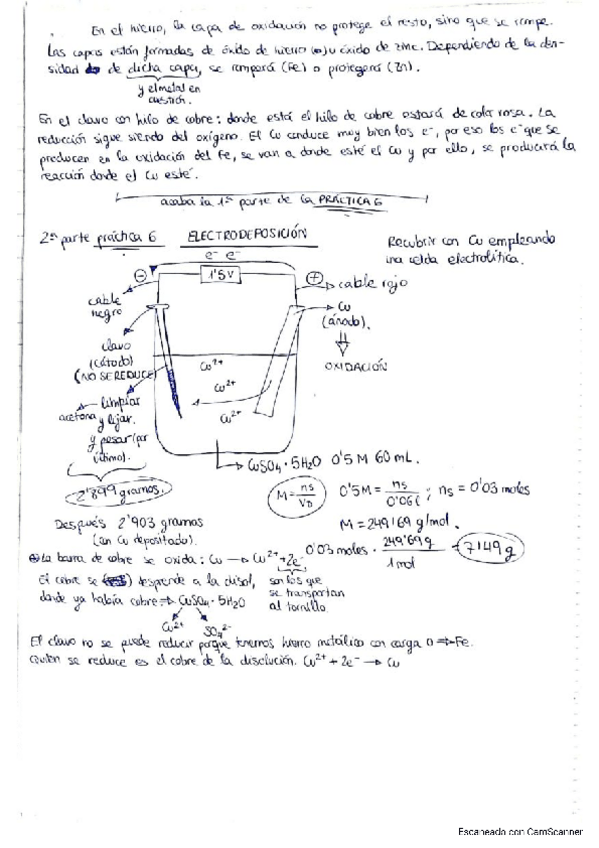 En el hierro, la capa de oxidación no protege el resto, sino que se rompe.
Las capas están formadas de óxido de hierro (o)u óxido de zinc. Dependiendo de la den-
sidad de dicha capa, se romperá (Fe) o protegerá (Zn).
y el metal en
cuestión.
En el clavo con hilo de cobre: donde está el hilo de cobre estará de color rosa. La
reducción sigue siendo del oxígeno. El Cu conduce muy bien los e⁻, por eso los e⁻ que se
producen en la oxidación del Fe, se van a donde esté el Cu y por ello, se producirá la
reacción donde el Cu esté.
acaba la 1ª parte de la PRÁCTICA 6
2ª parte práctica 6 ELECTRODEPOSICIÓN
Recubrir con Cu empleando
una celda electrolítica.
e⁻ e⁻
1'5V
⊖
⊕ cable rojo
cable
negro
Cu
(ánodo).
OXIDACIÓN
clavo
(cátodo)
(NO SE REDUCE)
limpiar
acetona y lijar.
y pesar (por
último).
Cu²⁺
Cu²⁺
Cu²⁺
CuSO₄ · 5H₂O 0'5 M 60 mL.
2'899 gramos.
M = ns/VD
0'5M = ns/0'06L ; ns = 0'03 moles
Después 2'903 gramos
(con Cu depositado).
M = 249'69 g/mol.
0'03 moles · 249'69 g/1 mol = 7'49 g
La barra de cobre se oxida: Cu → Cu²⁺ + 2e⁻
El cobre se desprende a la disol,
donde ya había cobre ⇒ CuSO₄ · 5H₂O
son los que
se transportan
al tornillo.
Cu²⁺ SO₄²⁻
El clavo no se puede reducir porque tenemos hierro metálico con carga 0 ⇒ Fe.
Quien se reduce es el cobre de la disolución. Cu²⁺ + 2e⁻ → Cu
Escaneado con CamScanner